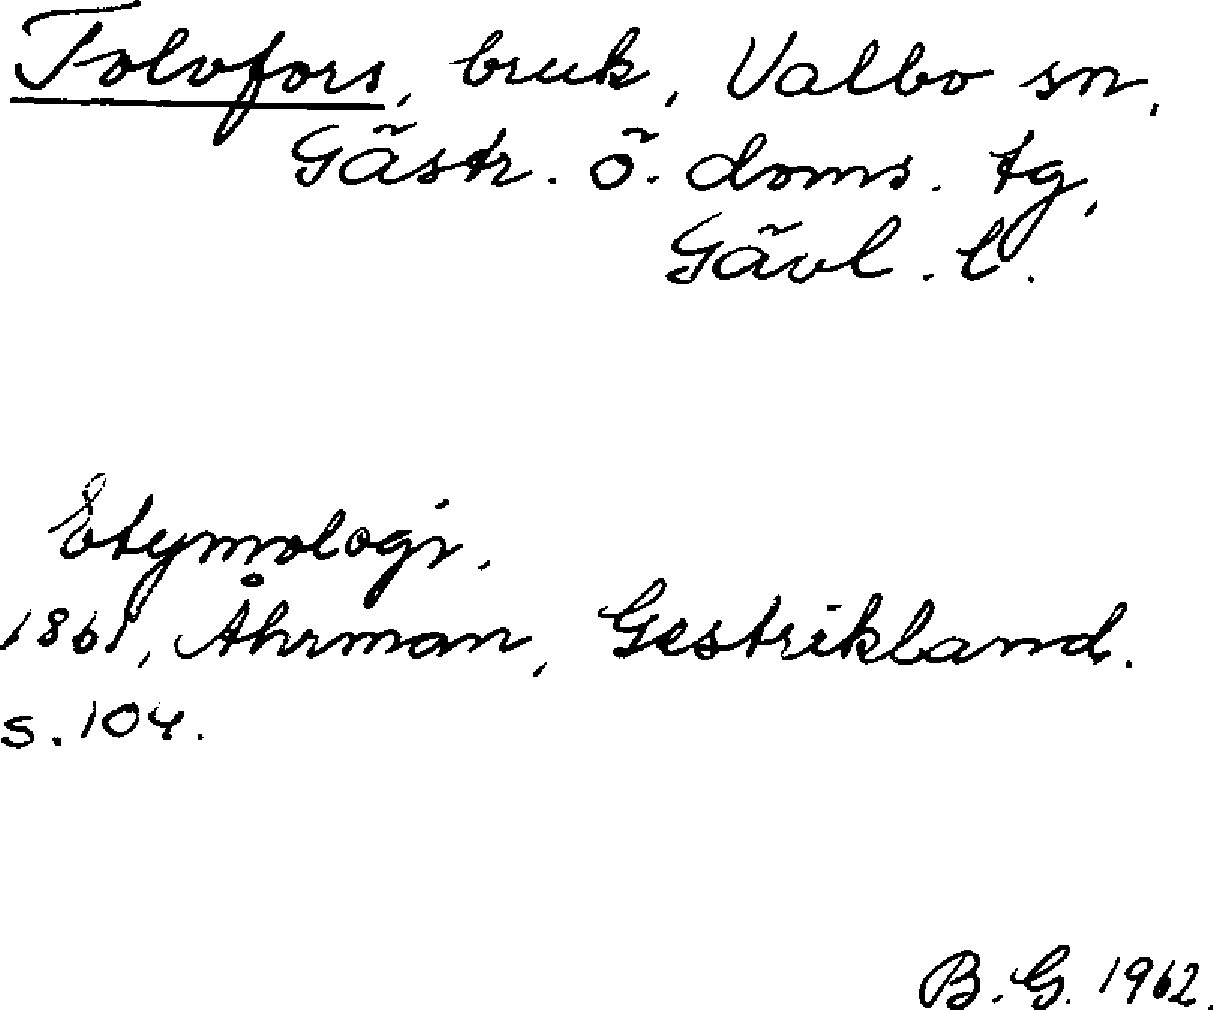 Tolvfors, bruk, Valbo sn,
Gästr. ö. doms. tg,
Gävl. l.
Etymologi.
1861, Åhrman, Gestrikland.
s. 104.
B. G. 1962.